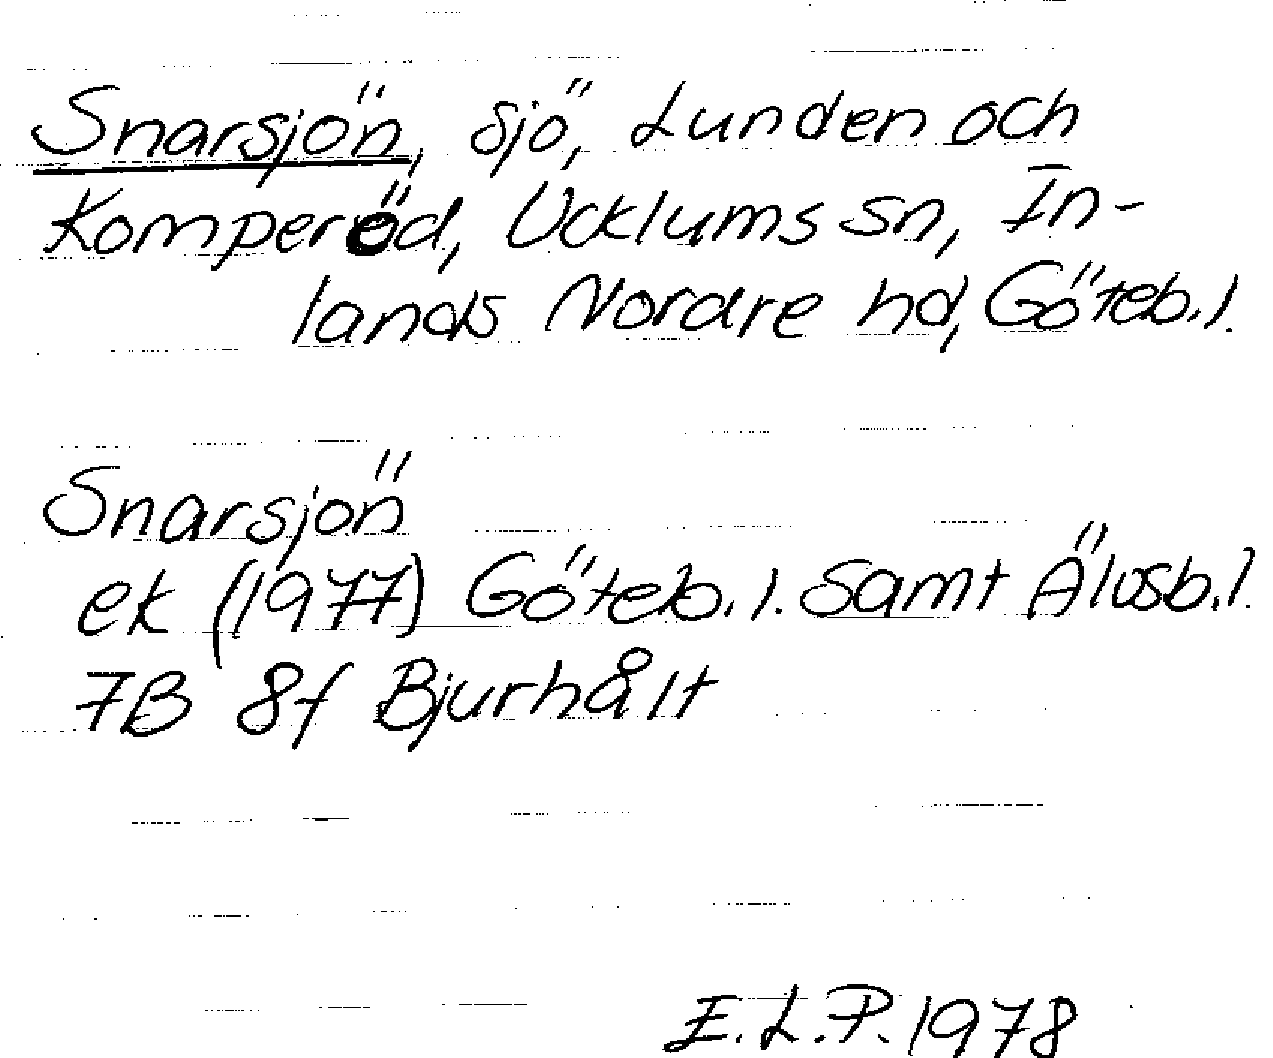 Snarsjön, sjö, Lunden och
Komperöd, Ucklums sn, In-
lands Nordre hd, Göteb. l.
Snarsjön
ek (1977) Göteb. l. samt Älvsb. l.
7B 8f Bjurhålt
E. L. P. 1978